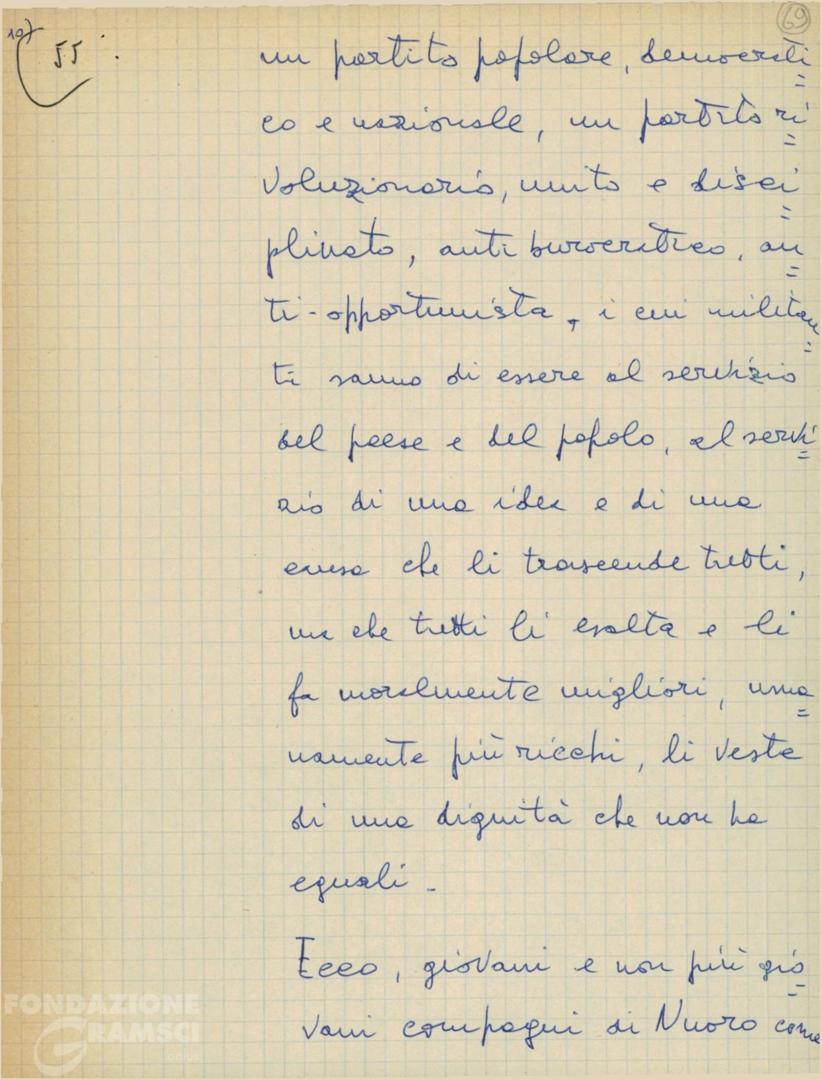 10)
55
69
un partito popolare, democrati=
co e nazionale, un partito ri=
voluzionario, unito e disci=
plinato, antiburocratico, an=
ti-opportunista, i cui militan=
ti sanno di essere al servizio
del paese e del popolo, al servi=
zio di una idea e di una
causa che li trascende tutti,
ma che tutti li esalta e li
fa moralmente migliori, uma=
namente più ricchi, li veste
di una dignità che non ha
eguali.
Ecco, giovani e non più gio=
vani compagni di Nuoro come
FONDAZIONE
GRAMSCI
onlus